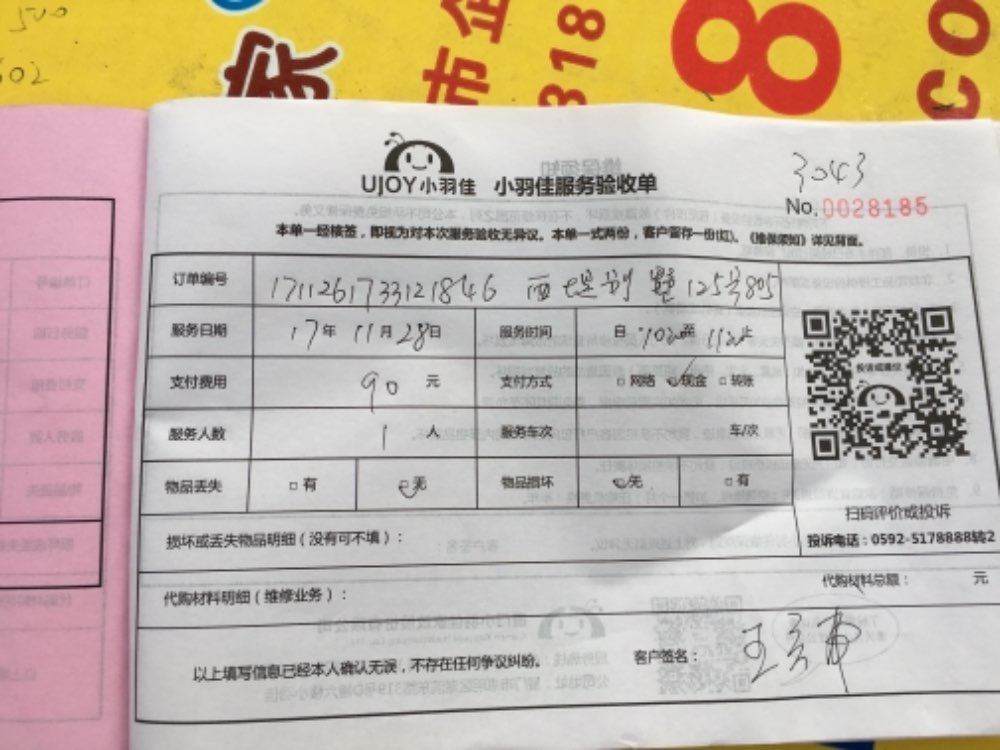 500
602
家
市企
818
8
CO
UJOY小羽佳 小羽佳服务验收单
3043
No.0028185
本单一经核签，即视为对本次服务验收无异议。本单一式两份，客户留存一份(红)。《维保须知》详见背面。
订单编号 1711261733121846 西堤别墅125号805
服务日期 17年11月28日 服务时间 自 至 止
支付费用 90 元 支付方式 □网络 ☑现金 □转账
服务人数 1 人 服务车次 车/次
物品丢失 □有 ☑无 物品损坏 ☑无 □有
投诉或建议
扫码评价或投诉
投诉电话：0592-5178888转2
损坏或丢失物品明细（没有可不填）：
代购材料明细（维修业务）： 代购材料总额： 元
以上填写信息已经本人确认无误，不存在任何争议纠纷。 客户签名： 王